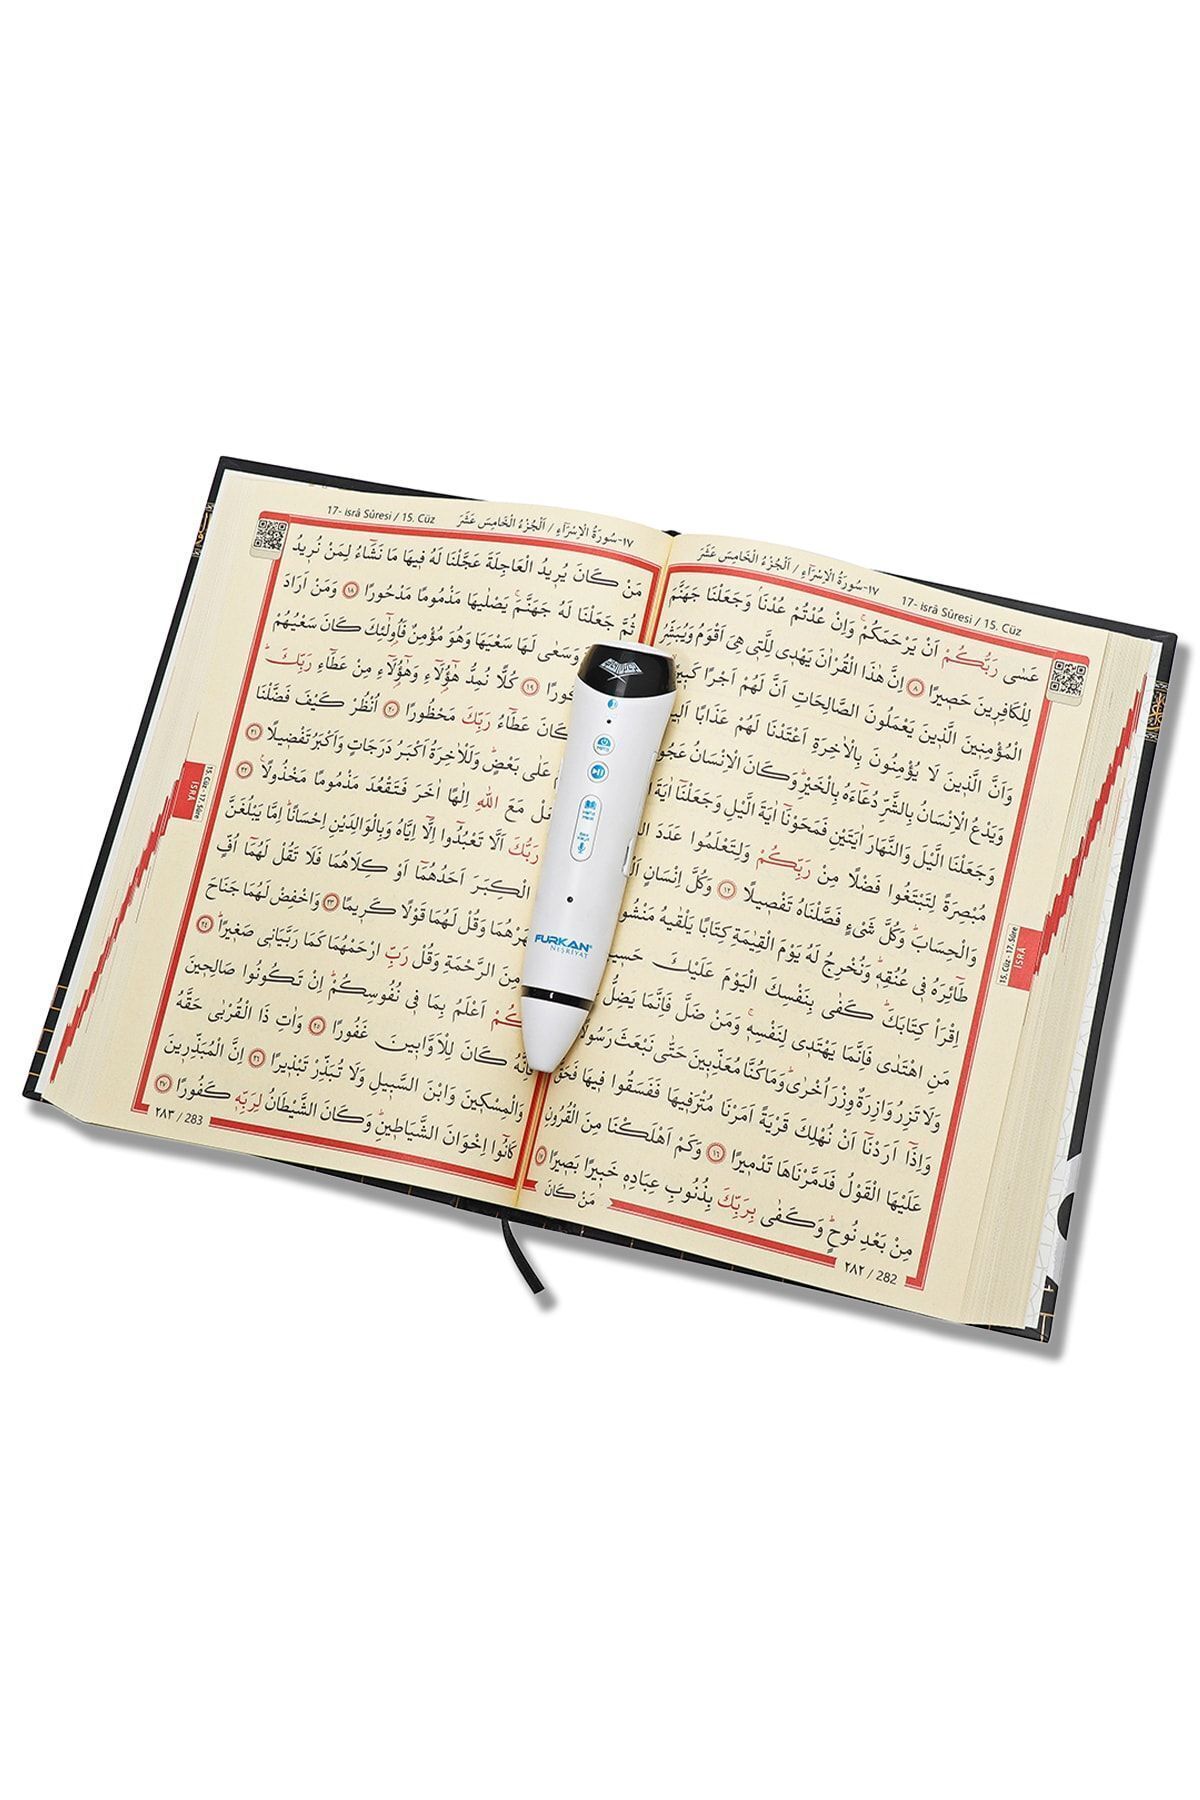 ١٧-سُورَةُ الْاِسْرَٓاءِ / اَلْجُزْءُ الْخَامِسَ عَشَرَ 17- isrâ Sûresi / 15. Cüz
عَسٰى رَبُّكُمْ اَنْ يَرْحَمَكُمْۚ وَاِنْ عُدْتُمْ عُدْنَاۢ وَجَعَلْنَا جَهَنَّمَ
لِلْكَافِرٖينَ حَصٖيرًا ﴿٨﴾ اِنَّ هٰذَا الْقُرْاٰنَ يَهْدٖى لِلَّتٖى هِىَ اَقْوَمُ وَيُبَشِّرُ
الْمُؤْمِنٖينَ الَّذٖينَ يَعْمَلُونَ الصَّالِحَاتِ اَنَّ لَهُمْ اَجْرًا كَبٖيرًا
وَاَنَّ الَّذٖينَ لَا يُؤْمِنُونَ بِالْاٰخِرَةِ اَعْتَدْنَا لَهُمْ عَذَابًا
وَيَدْعُ الْاِنْسَانُ بِالشَّرِّ دُعَٓاءَهُ بِالْخَيْرِؕ وَكَانَ الْاِنْسَانُ
وَجَعَلْنَا الَّيْلَ وَالنَّهَارَ اٰيَتَيْنِ فَمَحَوْنَٓا اٰيَةَ الَّيْلِ وَجَعَلْنَٓا اٰيَةَ
مُبْصِرَةً لِتَبْتَغُوا فَضْلًا مِنْ رَبِّكُمْ وَلِتَعْلَمُوا عَدَدَ
وَالْحِسَابَؕ وَكُلَّ شَىْءٍ فَصَّلْنَاهُ تَفْصٖيلًا ﴿١٢﴾ وَكُلَّ اِنْسَانٍ
طَٓائِرَهُ فٖى عُنُقِهٖؕ وَنُخْرِجُ لَهُ يَوْمَ الْقِيٰمَةِ كِتَابًا يَلْقٰيهُ
اِقْرَاْ كِتَابَكَؕ كَفٰى بِنَفْسِكَ الْيَوْمَ عَلَيْكَ
مَنِ اهْتَدٰى فَاِنَّمَا يَهْتَدٖى لِنَفْسِهٖۚ وَمَنْ ضَلَّ فَاِنَّمَا يَضِلُّ
وَلَا تَزِرُ وَازِرَةٌ وِزْرَ اُخْرٰىؕ وَمَا كُنَّا مُعَذِّبٖينَ حَتّٰى نَبْعَثَ رَسُولًا
وَاِذَٓا اَرَدْنَٓا اَنْ نُهْلِكَ قَرْيَةً اَمَرْنَا مُتْرَفٖيهَا فَفَسَقُوا فٖيهَا فَحَقَّ
عَلَيْهَا الْقَوْلُ فَدَمَّرْنَاهَا تَدْمٖيرًا ﴿١٦﴾ وَكَمْ اَهْلَكْنَا مِنَ الْقُرُونِ
مِنْ بَعْدِ نُوحٍؕ وَكَفٰى بِرَبِّكَ بِذُنُوبِ عِبَادِهٖ خَبٖيرًا بَصٖيرًا ﴿١٧﴾
مَنْ كَانَ
٢٨٢ / 282
15. Cüz - 17. Sûre
İSRÂ
17- isrâ Sûresi / 15. Cüz ١٧-سُورَةُ الْاِسْرَٓاءِ / اَلْجُزْءُ الْخَامِسَ عَشَرَ
مَنْ كَانَ يُرٖيدُ الْعَاجِلَةَ عَجَّلْنَا لَهُ فٖيهَا مَا نَشَٓاءُ لِمَنْ نُرٖيدُ
ثُمَّ جَعَلْنَا لَهُ جَهَنَّمَۚ يَصْلٰيهَا مَذْمُومًا مَدْحُورًا ﴿١٨﴾ وَمَنْ اَرَادَ
وَسَعٰى لَهَا سَعْيَهَا وَهُوَ مُؤْمِنٌ فَاُو۬لٰٓئِكَ كَانَ سَعْيُهُمْ
﴿١٩﴾ كُلًّا نُمِدُّ هٰٓؤُ۬لَٓاءِ وَهٰٓؤُ۬لَٓاءِ مِنْ عَطَٓاءِ رَبِّكَؕ
كَانَ عَطَٓاءُ رَبِّكَ مَحْظُورًا ﴿٢٠﴾ اُنْظُرْ كَيْفَ فَضَّلْنَا
عَلٰى بَعْضٍؕ وَلَلْاٰخِرَةُ اَكْبَرُ دَرَجَاتٍ وَاَكْبَرُ تَفْضٖيلًا ﴿٢١﴾
مَعَ اللّٰهِ اِلٰهًا اٰخَرَ فَتَقْعُدَ مَذْمُومًا مَخْذُولًاࣖ ﴿٢٢﴾
رَبُّكَ اَلَّا تَعْبُدُٓوا اِلَّٓا اِيَّاهُ وَبِالْوَالِدَيْنِ اِحْسَانًاؕ اِمَّا يَبْلُغَنَّ
الْكِبَرَ اَحَدُهُمَٓا اَوْ كِلَاهُمَا فَلَا تَقُلْ لَهُمَٓا اُفٍّ
وَقُلْ لَهُمَا قَوْلًا كَرٖيمًا ﴿٢٣﴾ وَاخْفِضْ لَهُمَا جَنَاحَ
مِنَ الرَّحْمَةِ وَقُلْ رَبِّ ارْحَمْهُمَا كَمَا رَبَّيَانٖى صَغٖيرًاؕ ﴿٢٤﴾
اَعْلَمُ بِمَا فٖى نُفُوسِكُمْؕ اِنْ تَكُونُوا صَالِحٖينَ
فَاِنَّهُ كَانَ لِلْاَوَّابٖينَ غَفُورًا ﴿٢٥﴾ وَاٰتِ ذَا الْقُرْبٰى حَقَّهُ
وَالْمِسْكٖينَ وَابْنَ السَّبٖيلِ وَلَا تُبَذِّرْ تَبْذٖيرًا ﴿٢٦﴾ اِنَّ الْمُبَذِّرٖينَ
كَانُٓوا اِخْوَانَ الشَّيَاطٖينِؕ وَكَانَ الشَّيْطَانُ لِرَبِّهٖ كَفُورًا ﴿٢٧﴾
٢٨٣ / 283
15. Cüz - 17. Sûre
İSRÂ
FURKAN
NEŞRİYAT